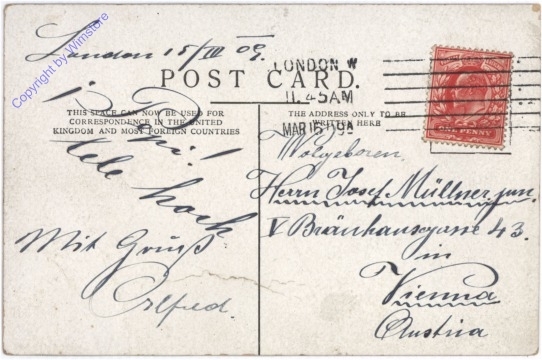 London 15/III 09.
Copyright by Wimstore
LONDON W
11.45AM
MAR 16 09
POST CARD.
THIS SPACE CAN NOW BE USED FOR
CORRESPONDENCE IN THE UNITED
KINGDOM AND MOST FOREIGN COUNTRIES
THE ADDRESS ONLY TO BE
WRITTEN HERE
ONE PENNY
hoch
Mit Gruß
Alfred.
Wolgeboren,
Herrn Josef Müllner jun.
V Bräuhausgasse 43.
in
Vienna
Austria